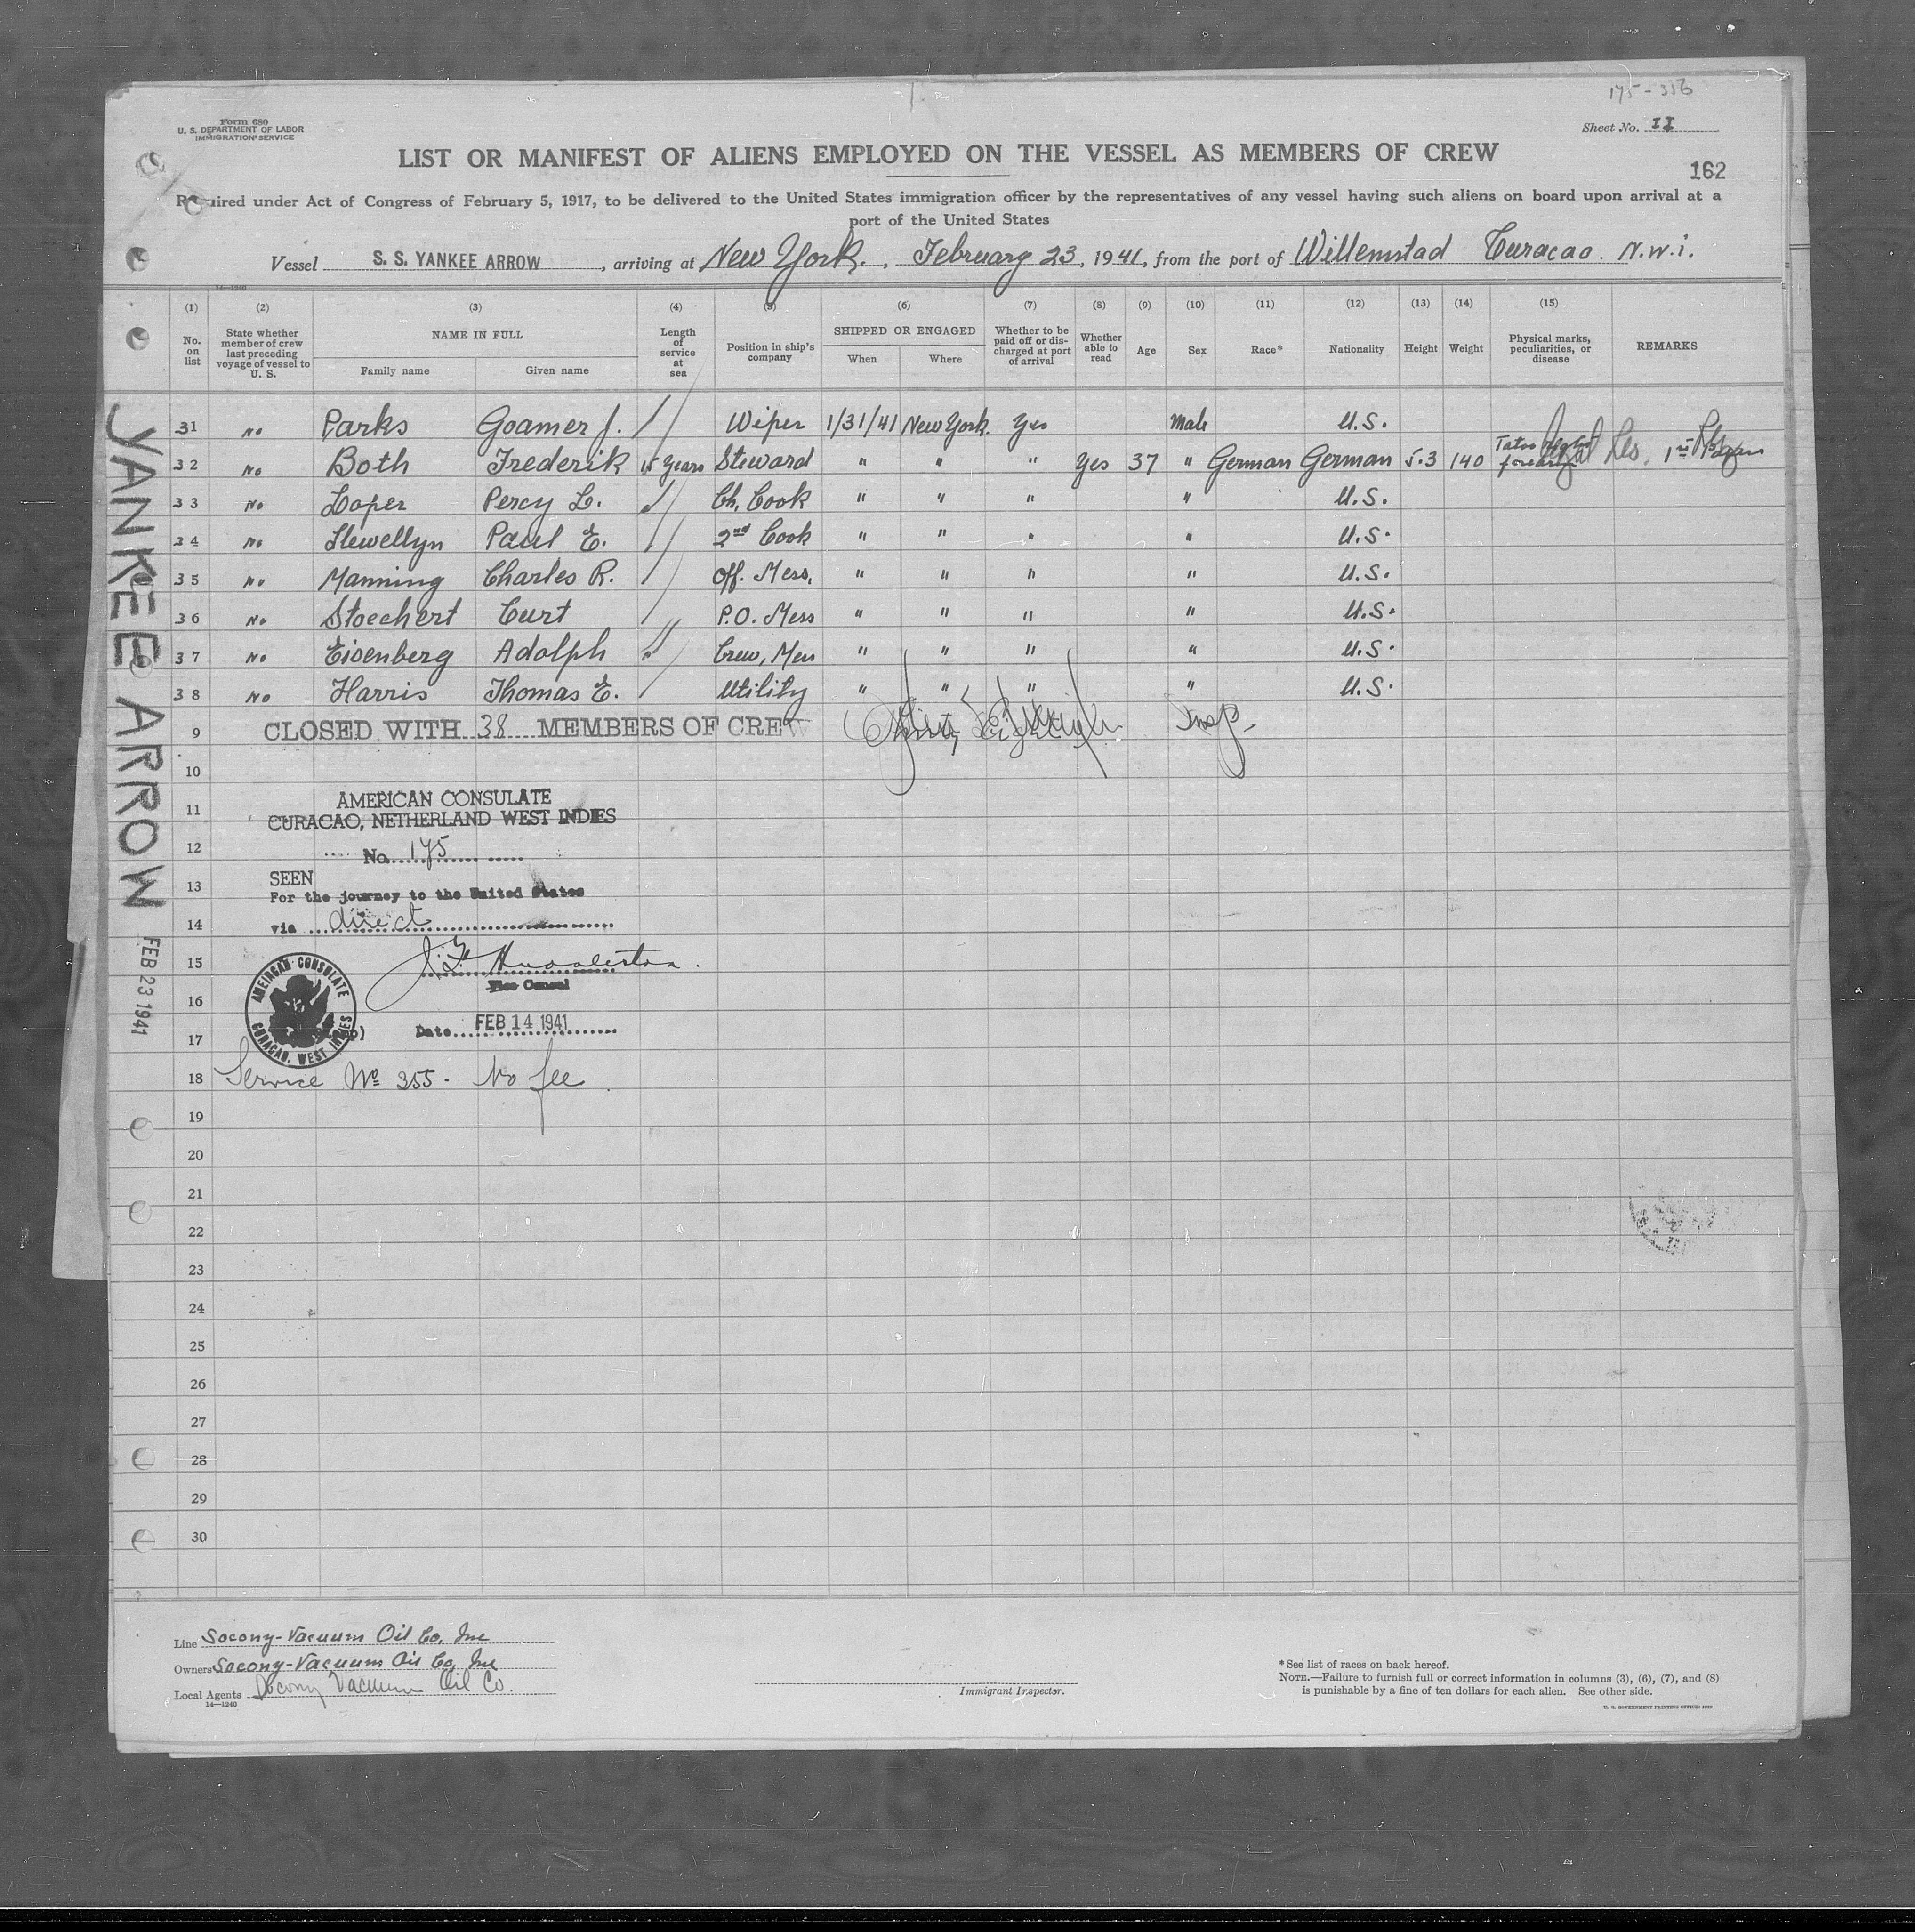 175-356
Form 680
U. S. DEPARTMENT OF LABOR
IMMIGRATION SERVICE
Sheet No. II
LIST OR MANIFEST OF ALIENS EMPLOYED ON THE VESSEL AS MEMBERS OF CREW
162
Required under Act of Congress of February 5, 1917, to be delivered to the United States immigration officer by the representatives of any vessel having such aliens on board upon arrival at a
port of the United States
Vessel S. S. YANKEE ARROW, arriving at New York, February 23, 1941, from the port of Willemstad Curacao. N.W.I.
14-1240
(1) (2) (3) (4) (5) (6) (7) (8) (9) (10) (11) (12) (13) (14) (15)
No. on list
State whether member of crew last preceding voyage of vessel to U. S.
NAME IN FULL
Family name
Given name
Length of service at sea
Position in ship's company
SHIPPED OR ENGAGED
When
Where
Whether to be paid off or discharged at port of arrival
Whether able to read
Age
Sex
Race*
Nationality
Height
Weight
Physical marks, peculiarities, or disease
REMARKS
31 No Parks Goamer J. Wiper 1/31/41 New York. Yes Male U.S.
32 No Both Frederik 15 years Steward " " " Yes 37 " German German 5.3 140 Tatoo right forearm Legal Res. 1st Papers
33 No Loper Percy L. Ch. Cook " " " " U.S.
34 No Llewellyn Paul E. 2nd Cook " " " " U.S.
35 No Manning Charles R. Off. Mess. " " " " U.S.
36 No Stoechert Curt P.O. Mess " " " " U.S.
37 No Eisenberg Adolph Crew, Mess " " " " U.S.
38 No Harris Thomas E. Utility " " " " U.S.
9 CLOSED WITH 38 MEMBERS OF CREW Insp.
10
11 AMERICAN CONSULATE
CURACAO, NETHERLAND WEST INDIES
12 No. 175
13 SEEN
For the journey to the United States
14 via direct
15
Vice Consul
16
AMERICAN CONSULATE
CURACAO, WEST INDIES
17 Date FEB 14 1941
18 Service No 355. No fee.
19
20
21
22
23
24
25
26
27
28
29
30
YANKEE ARROW
FEB 23 1941
Line Socony-Vacuum Oil Co, Inc
Owners Socony-Vacuum Oil Co, Inc
Local Agents Socony Vacuum Oil Co.
14-1240
Immigrant Inspector.
*See list of races on back hereof.
NOTE.—Failure to furnish full or correct information in columns (3), (6), (7), and (8)
is punishable by a fine of ten dollars for each alien. See other side.